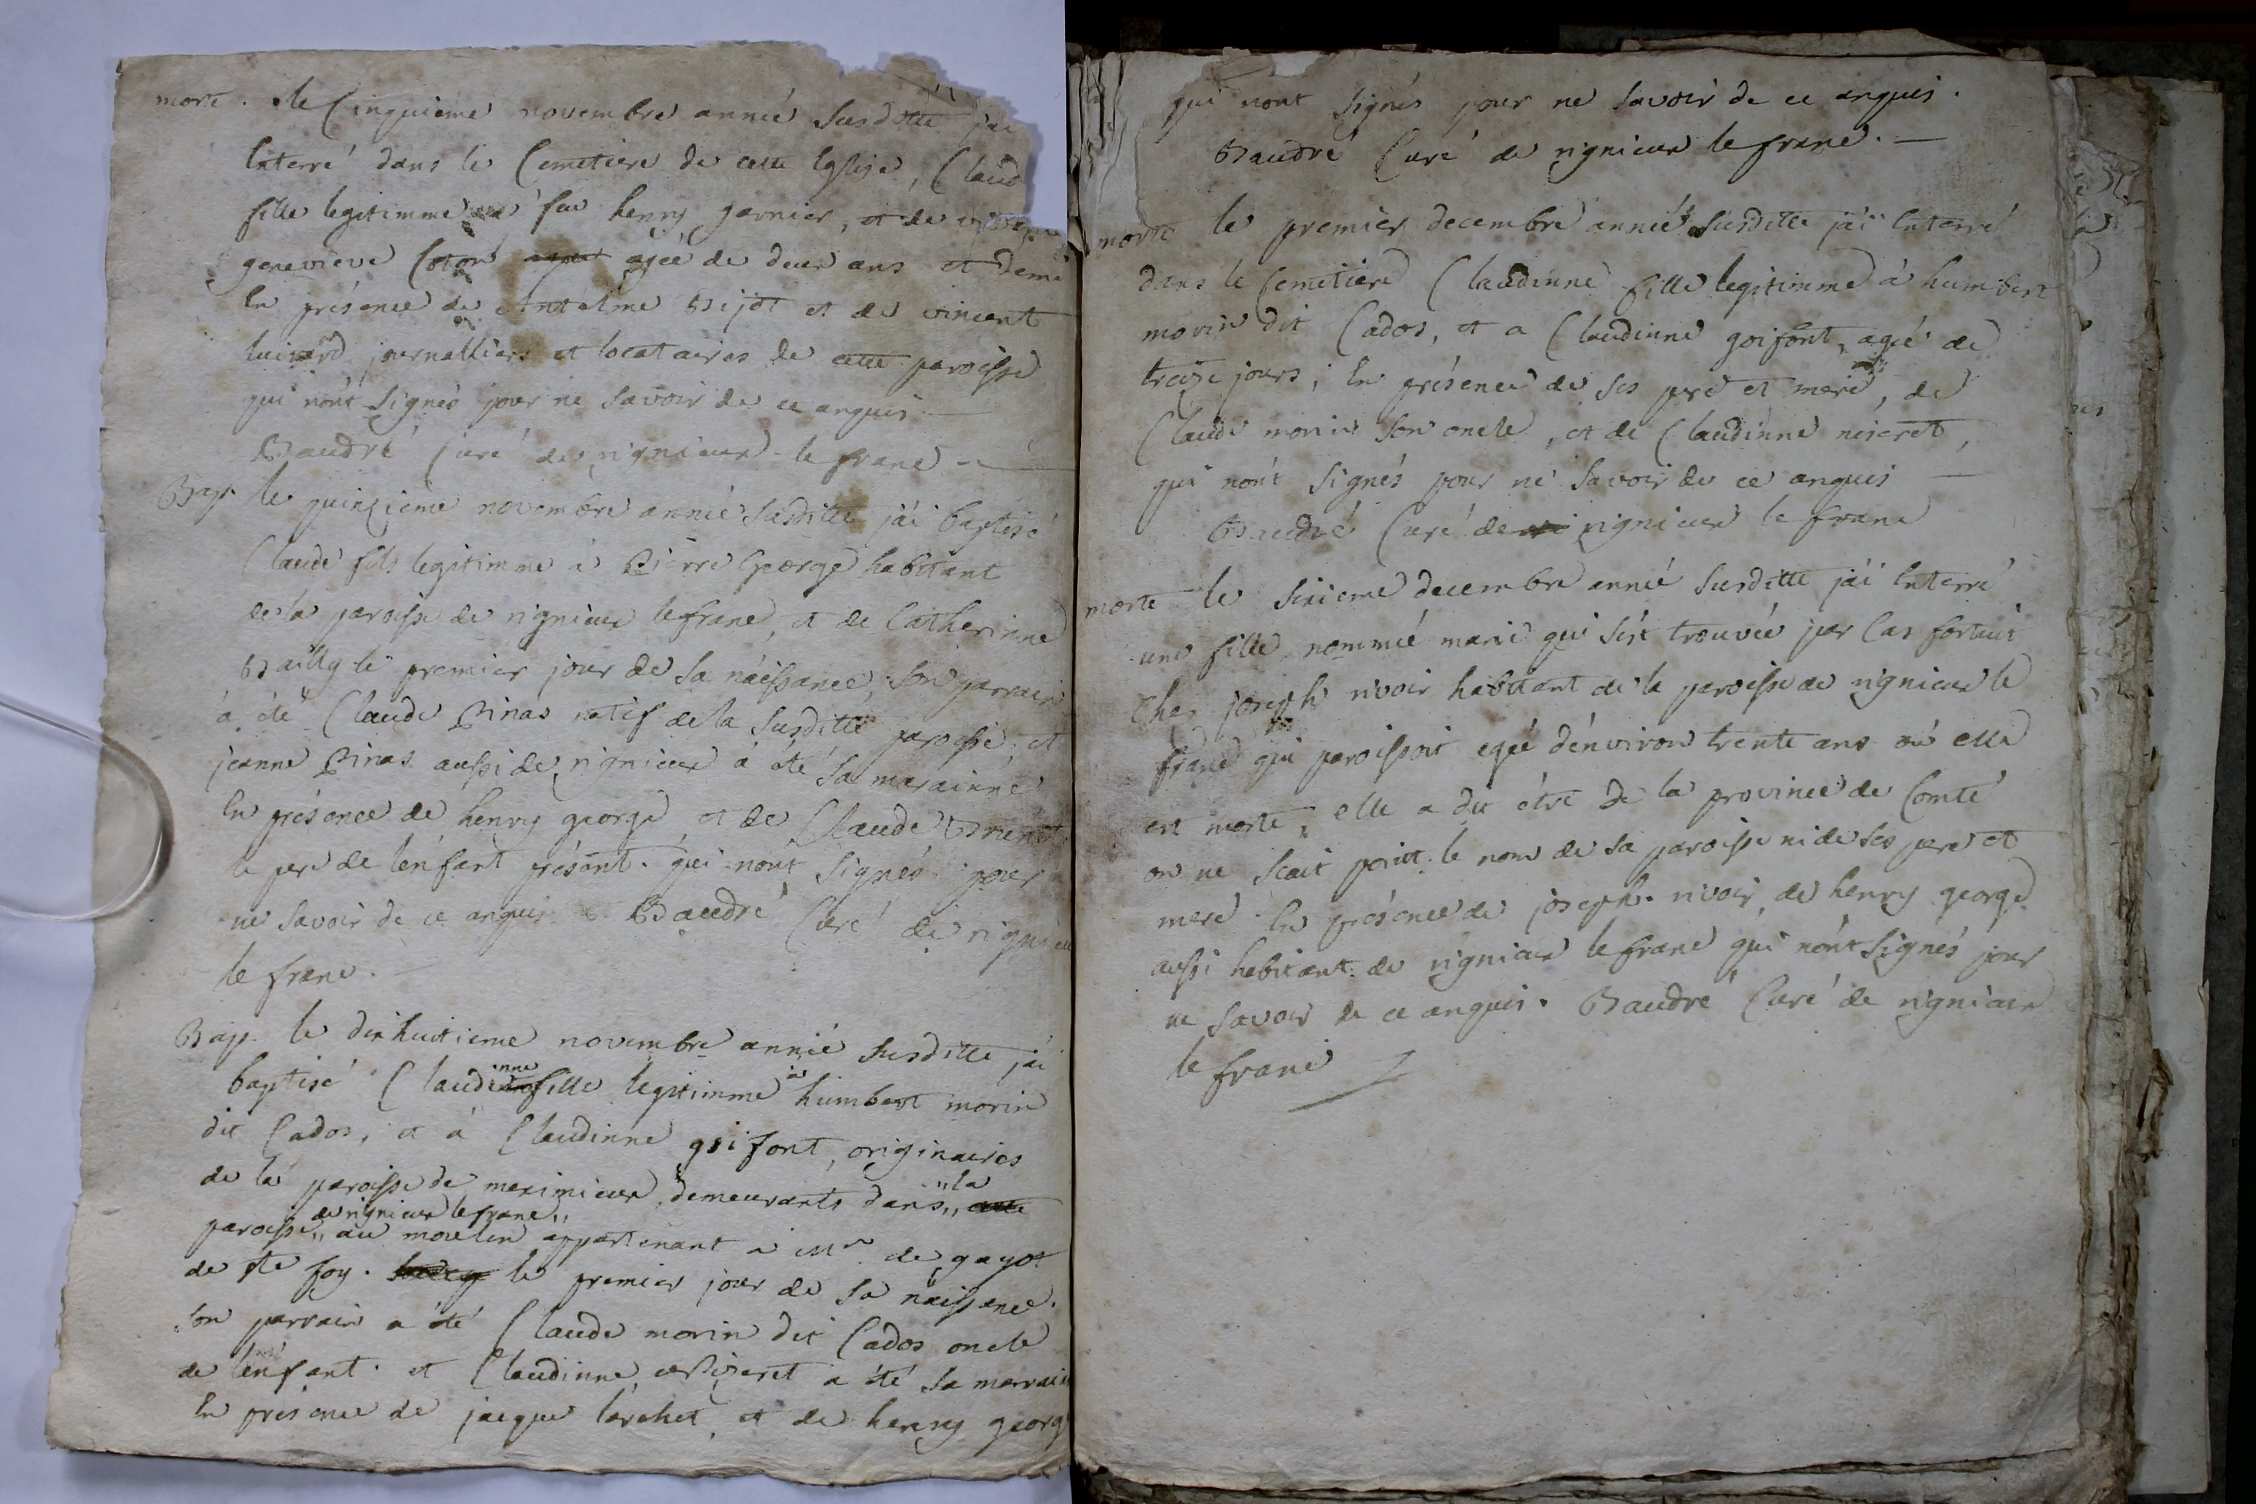 morte . le Cinquieme novembre année Susditte j'ai
Enterré dans le Cemetiere de cette Eglise, Claud
fille legitimme a feu henry garnier, et de
genevieve Coton agée de deux ans et demi
En présence de Antelme Bijot et de vincent
luisard journalliers et locataires de cette paroisse
qui n'ont Signés pour ne Savoir de ce anquis
Baudré Curé de rignieux le franc
Bap. le quinzieme novembre année Susditte j'ai baptisé
Claude fils legitimme à Pierre George habitant
de la paroisse de rignieux le franc, et de Catherinne
Bailly le premier jour de Sa naissance, Son parrain
à été Claude Pinas natif de la Susditte paroisse, et
jeanne Pinas aussi de rignieux à été Sa marainne
En présence de henry george, et de Claude
le pere de l'enfant présent. qui n'ont Signés pour
ne Savoir de ce anquis Baudré Curé de rignieux
le franc.
Bap. le dixhuitieme novembre année Susditte j'ai
baptisé Claudinne fille legitimme à humbert morin
dit Cados, et à Claudinne goifont, originaires
de la paroisse de meximieux, demeurants dans ,, la
paroisse ,, de rignieux le franc ,, au moulin appartenant a Mr de gayot
de ste foy. le premier jour de Sa naissance.
Son parrain a été Claude morin dit Cados oncle
de l'enfant. et Claudinne a été Sa marrain
En présence de jacque larchet, et de henry georg
qui n'ont Signés pour ne Savoir de ce anquis.
Baudré Curé de rignieux le franc.
morte le premier decembre année Susditte j'ai Enterré
dans le Cemetiere Claudinne fille legitimme à humbert
morin dit Cados, et a Claudinne goifont, agée de
treize jours; En présence de Ses pere et mere, de
Claude morin Son oncle, et de Claudinne niseret,
qui n'ont Signés pour ne Savoir de ce anquis
Baudré Curé de rignieux le franc
morte le Sixieme decembre année Susditte j'ai Enterré
une fille nommée marie qui s'est trouvée par Cas fortuit
Chez joseph rivoir habitant de la paroisse de rignieux le
franc qui paroissoit agée d'environ trente ans où elle
est morte, elle a dit être de la province de Comté
on ne Scait point le nom de Sa paroisse ni de Ses pere et
mere. En présence de joseph rivoir, de henry george
aussi habitant de rignieux le franc qui n'ont Signés pour
ne Savoir de ce anquis. Baudré Curé de rignieux
le franc